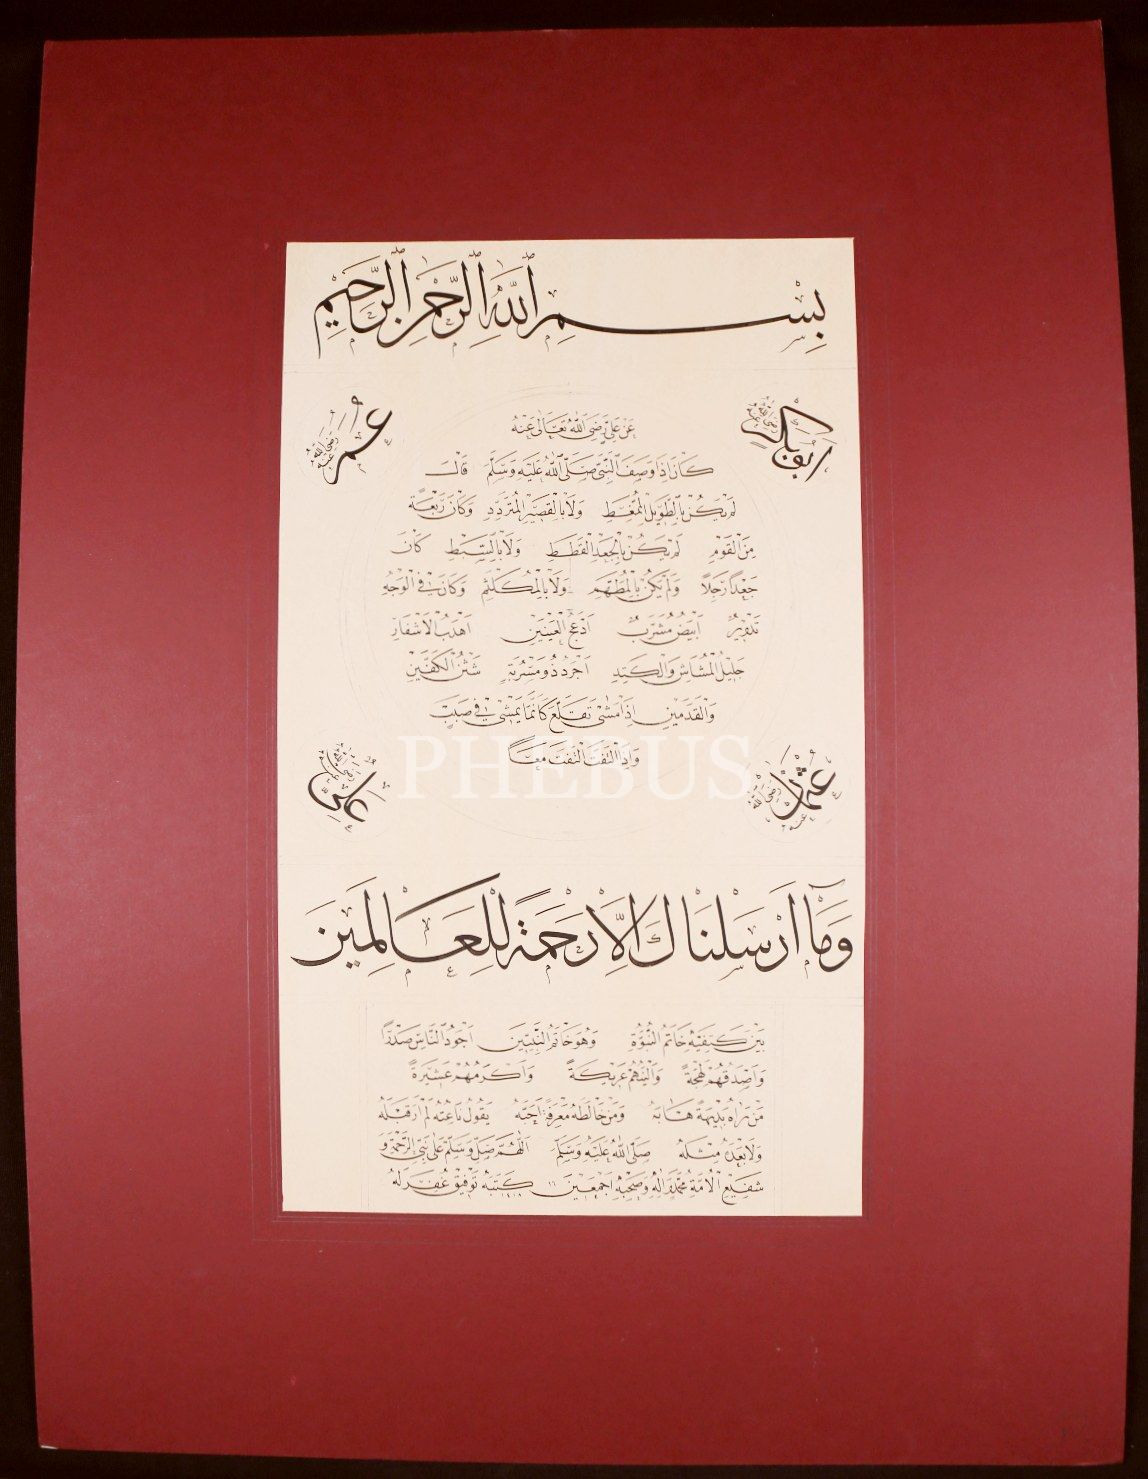 بِسْمِ اللّٰهِ الرَّحْمٰنِ الرَّحِيمِ
ابو بكر رضى الله عنه
عمر رضى الله عنه
عَنْ عَلِيٍّ رَضِىَ اللّٰهُ تَعَالٰى عَنْهُ
كَانَ اِذَا وَصَفَ النَّبِىَّ صَلَّى اللّٰهُ عَلَيْهِ وَسَلَّمَ قَالَ
لَمْ يَكُنْ بِالطَّوِيلِ الْمُمَّغِطِ وَلَا بِالْقَصِيرِ الْمُتَرَدِّدِ وَكَانَ رَبْعَةً
مِنَ الْقَوْمِ لَمْ يَكُنْ بِالْجَعْدِ الْقَطَطِ وَلَا بِالسَّبِطِ كَانَ
جَعْدًا رَجِلًا وَلَمْ يَكُنْ بِالْمُطَهَّمِ وَلَا بِالْمُكَلْثَمِ وَكَانَ فِى الْوَجْهِ
تَدْوِيرٌ اَبْيَضُ مُشْرَبٌ اَدْعَجُ الْعَيْنَيْنِ اَهْدَبُ الْاَشْفَارِ
جَلِيلُ الْمُشَاشِ وَالْكَتِدِ اَجْرَدُ ذُو مَسْرُبَةٍ شَثْنُ الْكَفَّيْنِ
وَالْقَدَمَيْنِ اِذَا مَشٰى تَقَلَّعَ كَاَنَّمَا يَمْشِى فِى صَبَبٍ
وَاِذَا الْتَفَتَ الْتَفَتَ مَعًا
عثمان رضى الله عنه
على رضى الله عنه
PHEBUS
وَمَآ اَرْسَلْنَاكَ اِلَّا رَحْمَةً لِلْعَالَمِينَ
بَيْنَ كَتِفَيْهِ خَاتَمُ النُّبُوَّةِ وَهُوَ خَاتَمُ النَّبِيِّينَ اَجْوَدُ النَّاسِ صَدْرًا
وَاَصْدَقُهُمْ لَهْجَةً وَاَلْيَنُهُمْ عَرِيكَةً وَاَكْرَمُهُمْ عَشِيرَةً
مَنْ رَاٰهُ بَدِيهَةً هَابَهُ وَمَنْ خَالَطَهُ مَعْرِفَةً اَحَبَّهُ يَقُولُ نَاعِتُهُ لَمْ اَرَ قَبْلَهُ
وَلَا بَعْدَهُ مِثْلَهُ صَلَّى اللّٰهُ عَلَيْهِ وَسَلَّمَ اَللّٰهُمَّ صَلِّ وَسَلِّمْ عَلٰى نَبِىِّ الرَّحْمَةِ وَ
شَفِيعِ الْاُمَّةِ مُحَمَّدٍ وَاٰلِهِ وَصَحْبِهِ اَجْمَعِينَ كَتَبَهُ تَوْفِيقْ غُفِرَ لَهُ